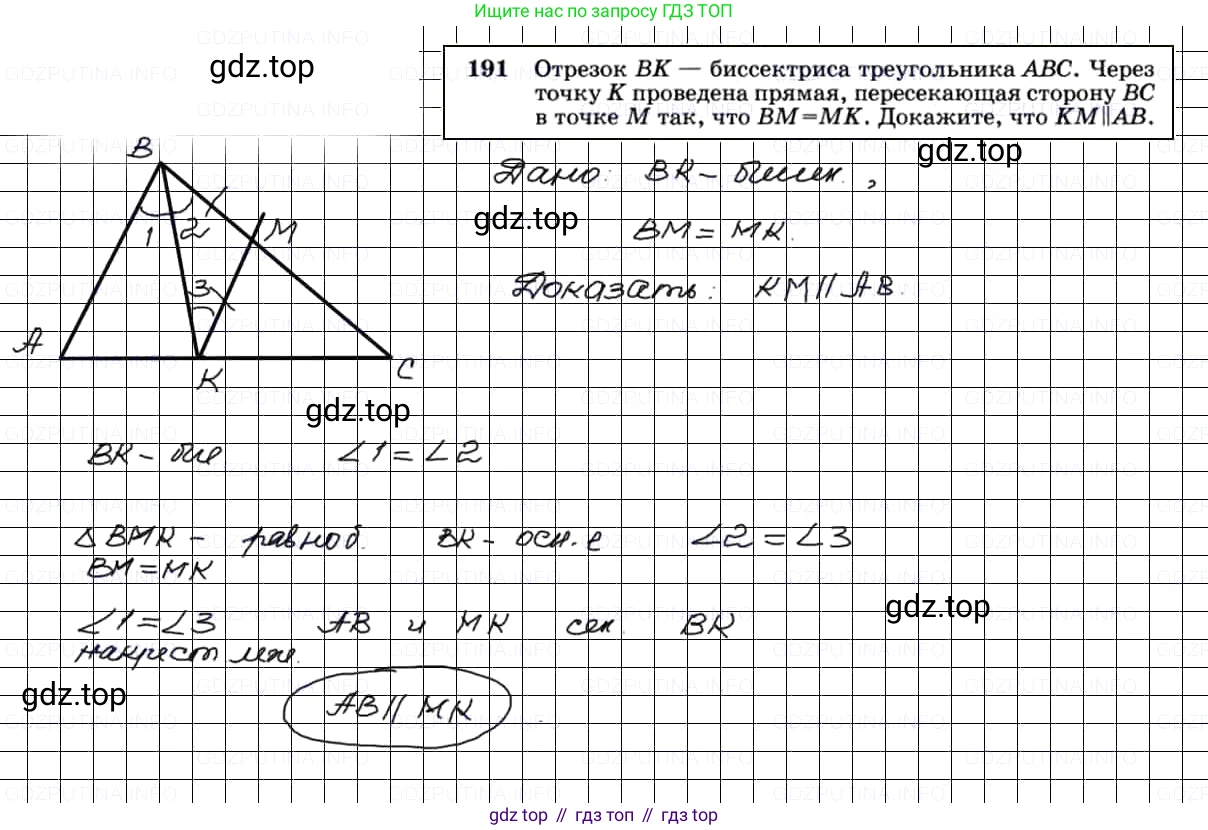 Ищите нас по запросу ГДЗ ТОП
gdz.top
191 Отрезок BK — биссектриса треугольника ABC. Через
точку K проведена прямая, пересекающая сторону BC
в точке M так, что BM=MK. Докажите, что KM∥AB.
gdz.top
B
Дано: BK - биссек.,
gdz.top
1 2
M
BM = MK.
3
Доказать: KM // AB.
A
K
C
gdz.top
BK - бис ∠1 = ∠2
Δ BMK - равноб. BK - осн.е ∠2 = ∠3
BM = MK
gdz.top
∠1 = ∠3 AB и MK сек. BK
накрест леж.
gdz.top
AB // MK
gdz top // гдз топ // гдз top